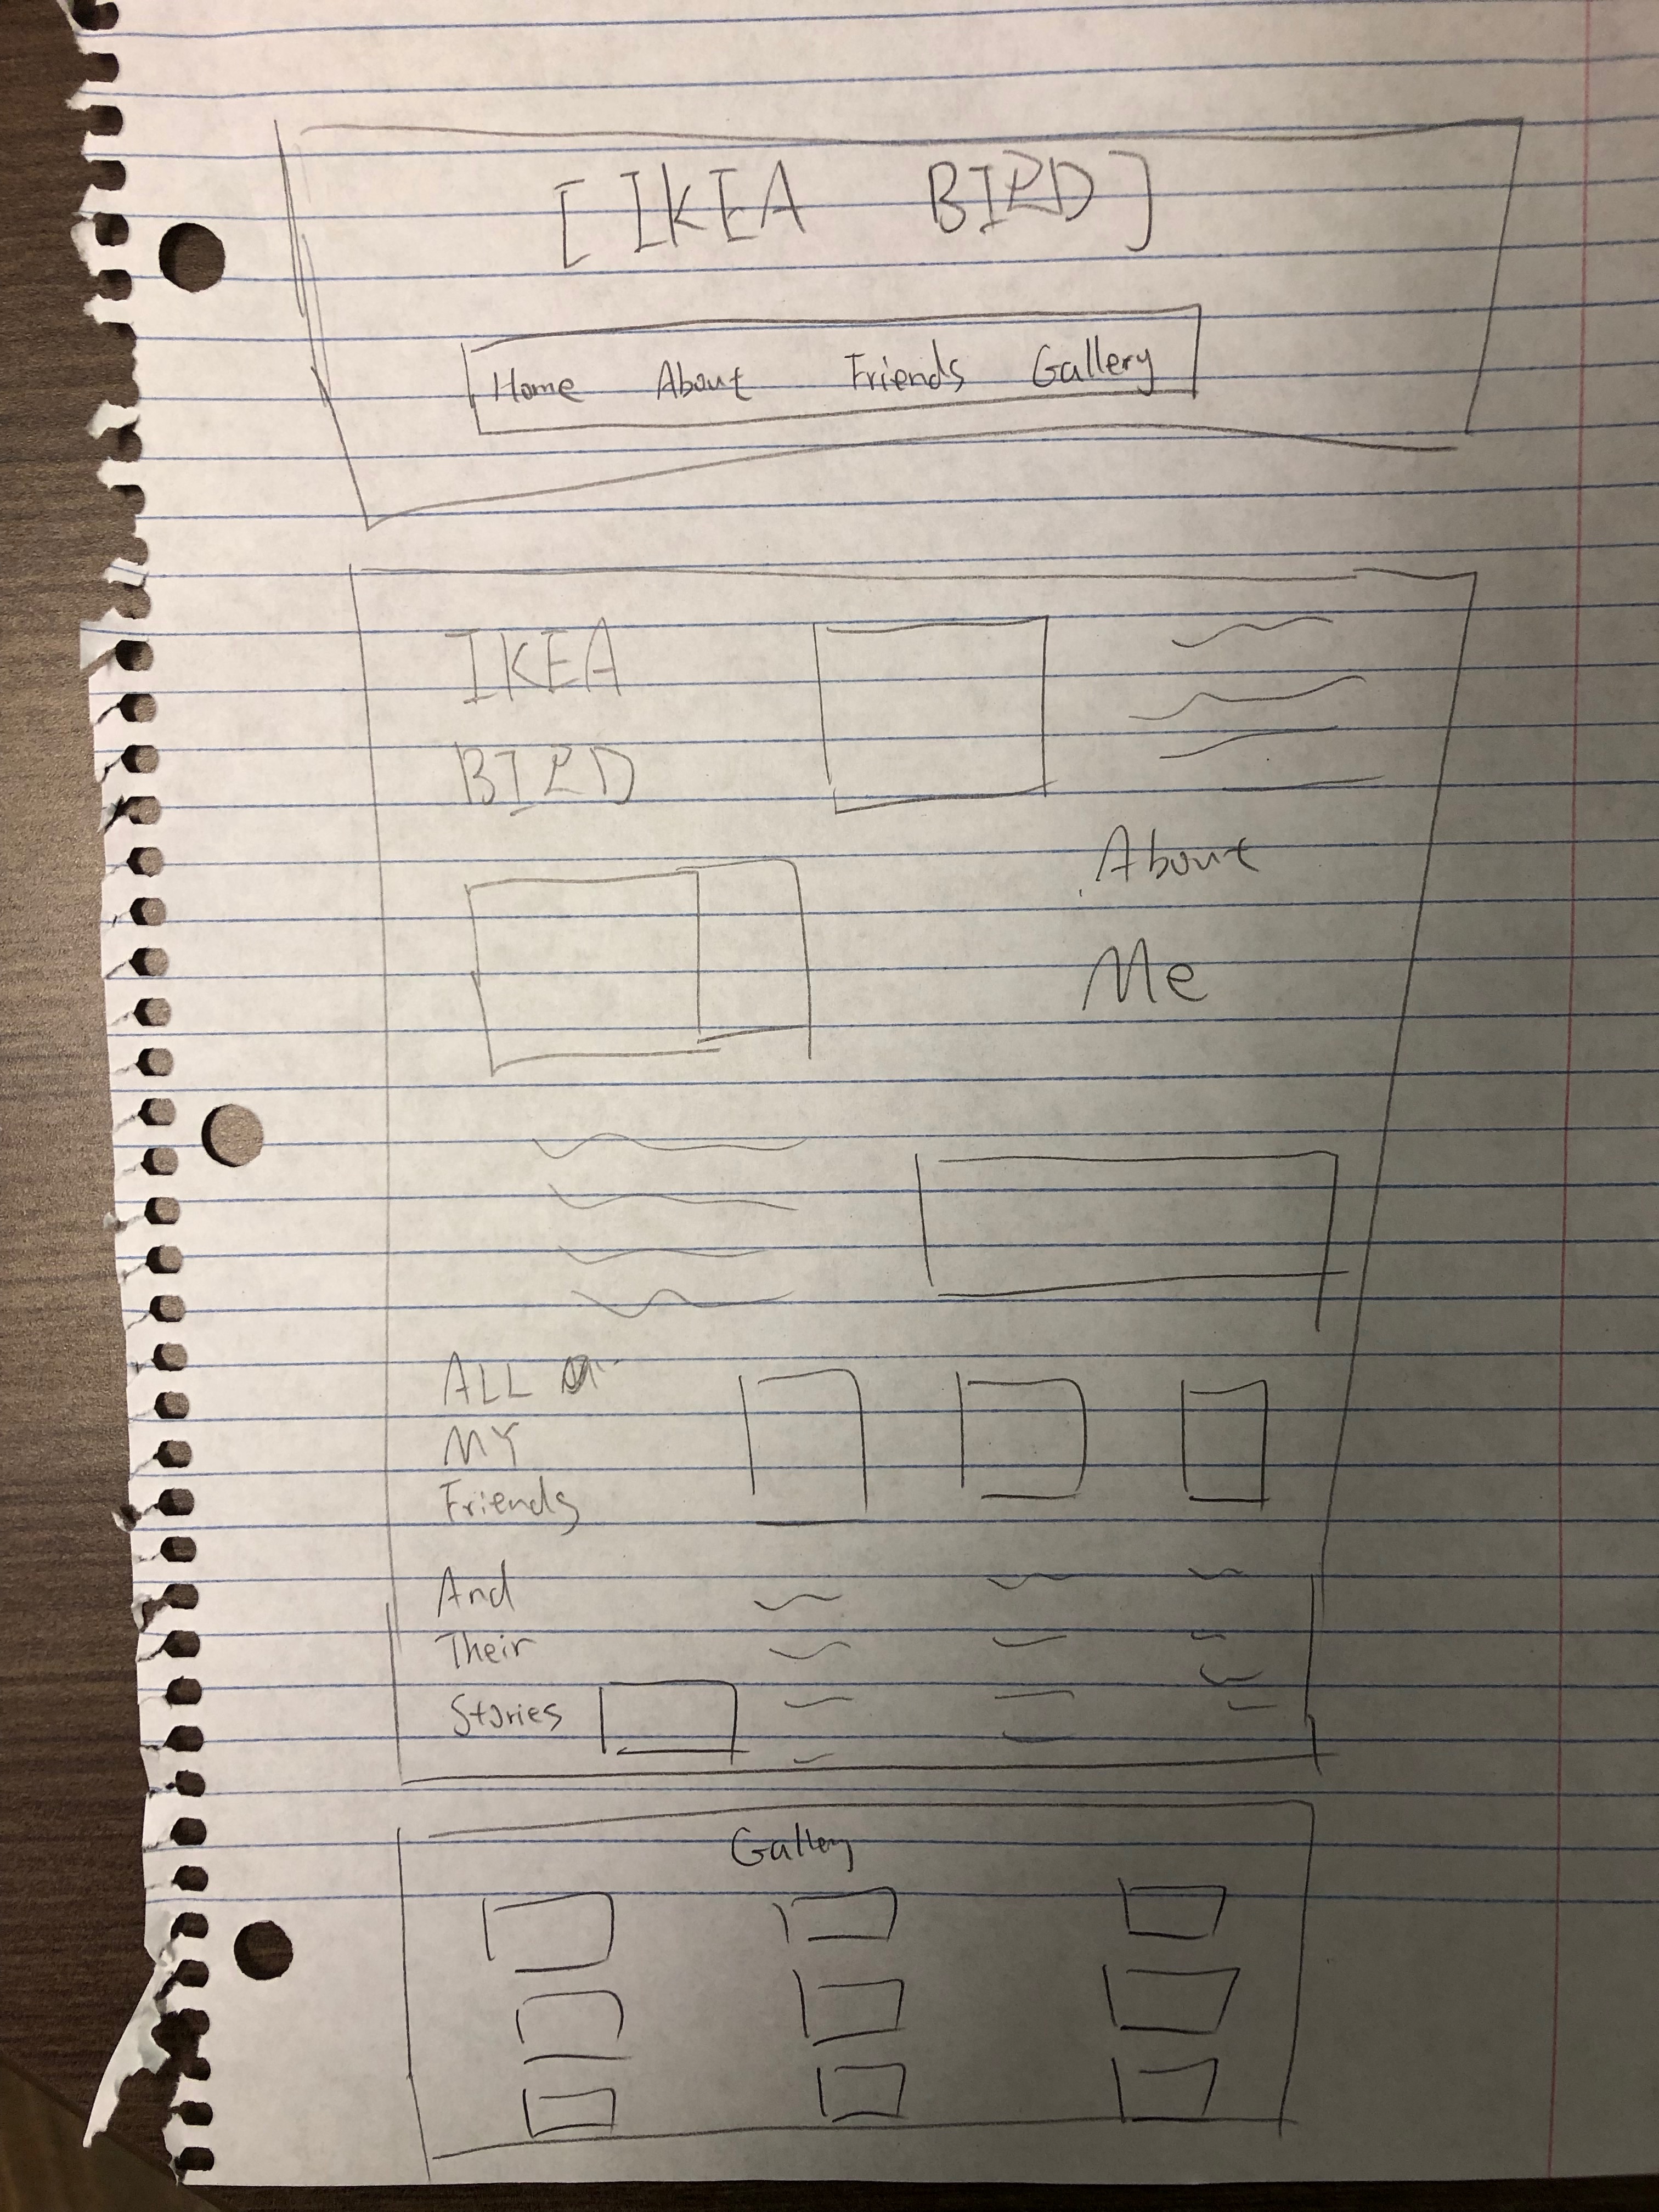 [IKEA BIRD]
Home About Friends Gallery
IKEA
BIRD
About
Me
ALL
MY
Friends
And
Their
Stories
Gallery